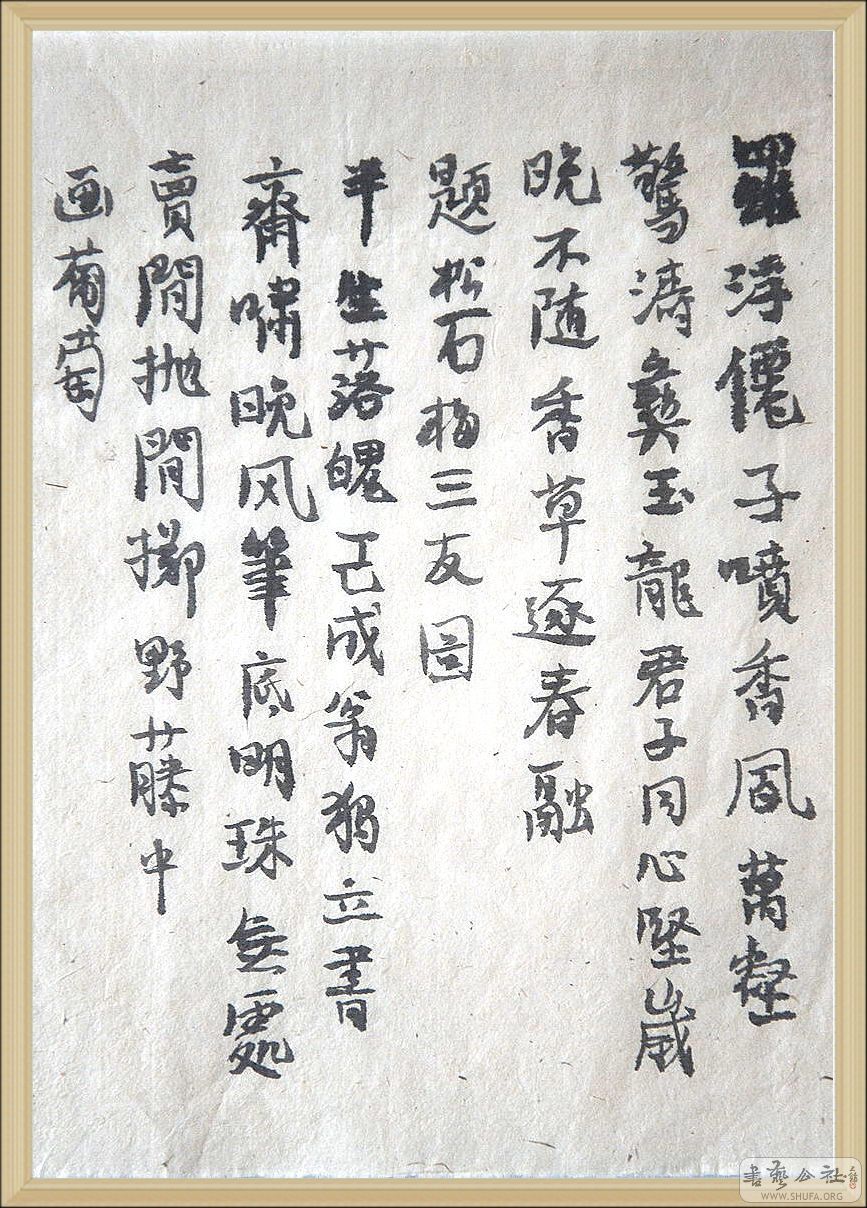 羅浮僊子噴香風萬壑
驚濤玉龍君子同心堅歲
晚不随香草逐春融
題松石梅三友圖
半生落魄已成翁獨立書
齋嘯晚风筆底明珠無處
賣閒抛閒擲野藤中
画葡萄
書藝公社
WWW.SHUFA.ORG